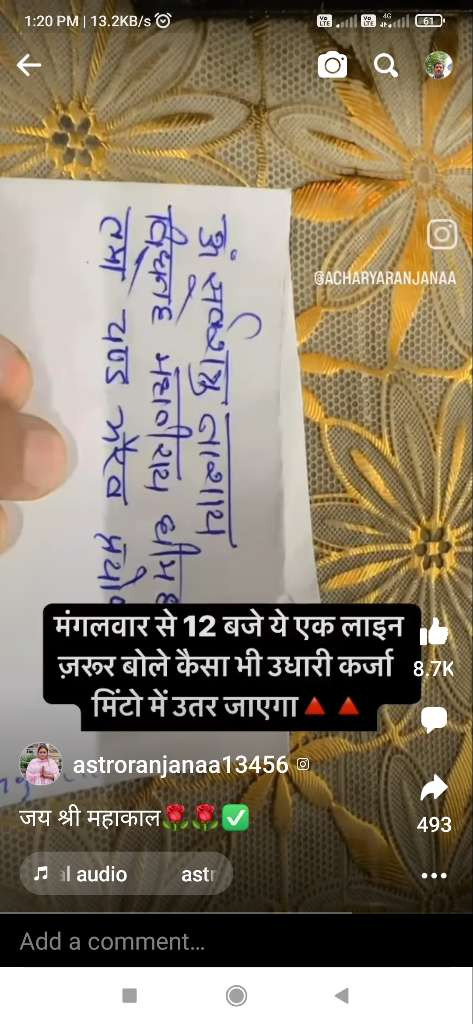 1:20 PM | 13.2KB/s
Vo LTE Vo LTE 4G 61
@ACHARYARANJANAA
ॐ सर्वशत्रु नाशाय
विद्महे
तन्नो चण्ड भैरव
मंगलवार से 12 बजे ये एक लाइन
ज़रूर बोले कैसा भी उधारी कर्जा
मिंटो में उतर जाएगा
8.7K
astroranjanaa13456
जय श्री महाकाल
493
al audio astr
Add a comment...